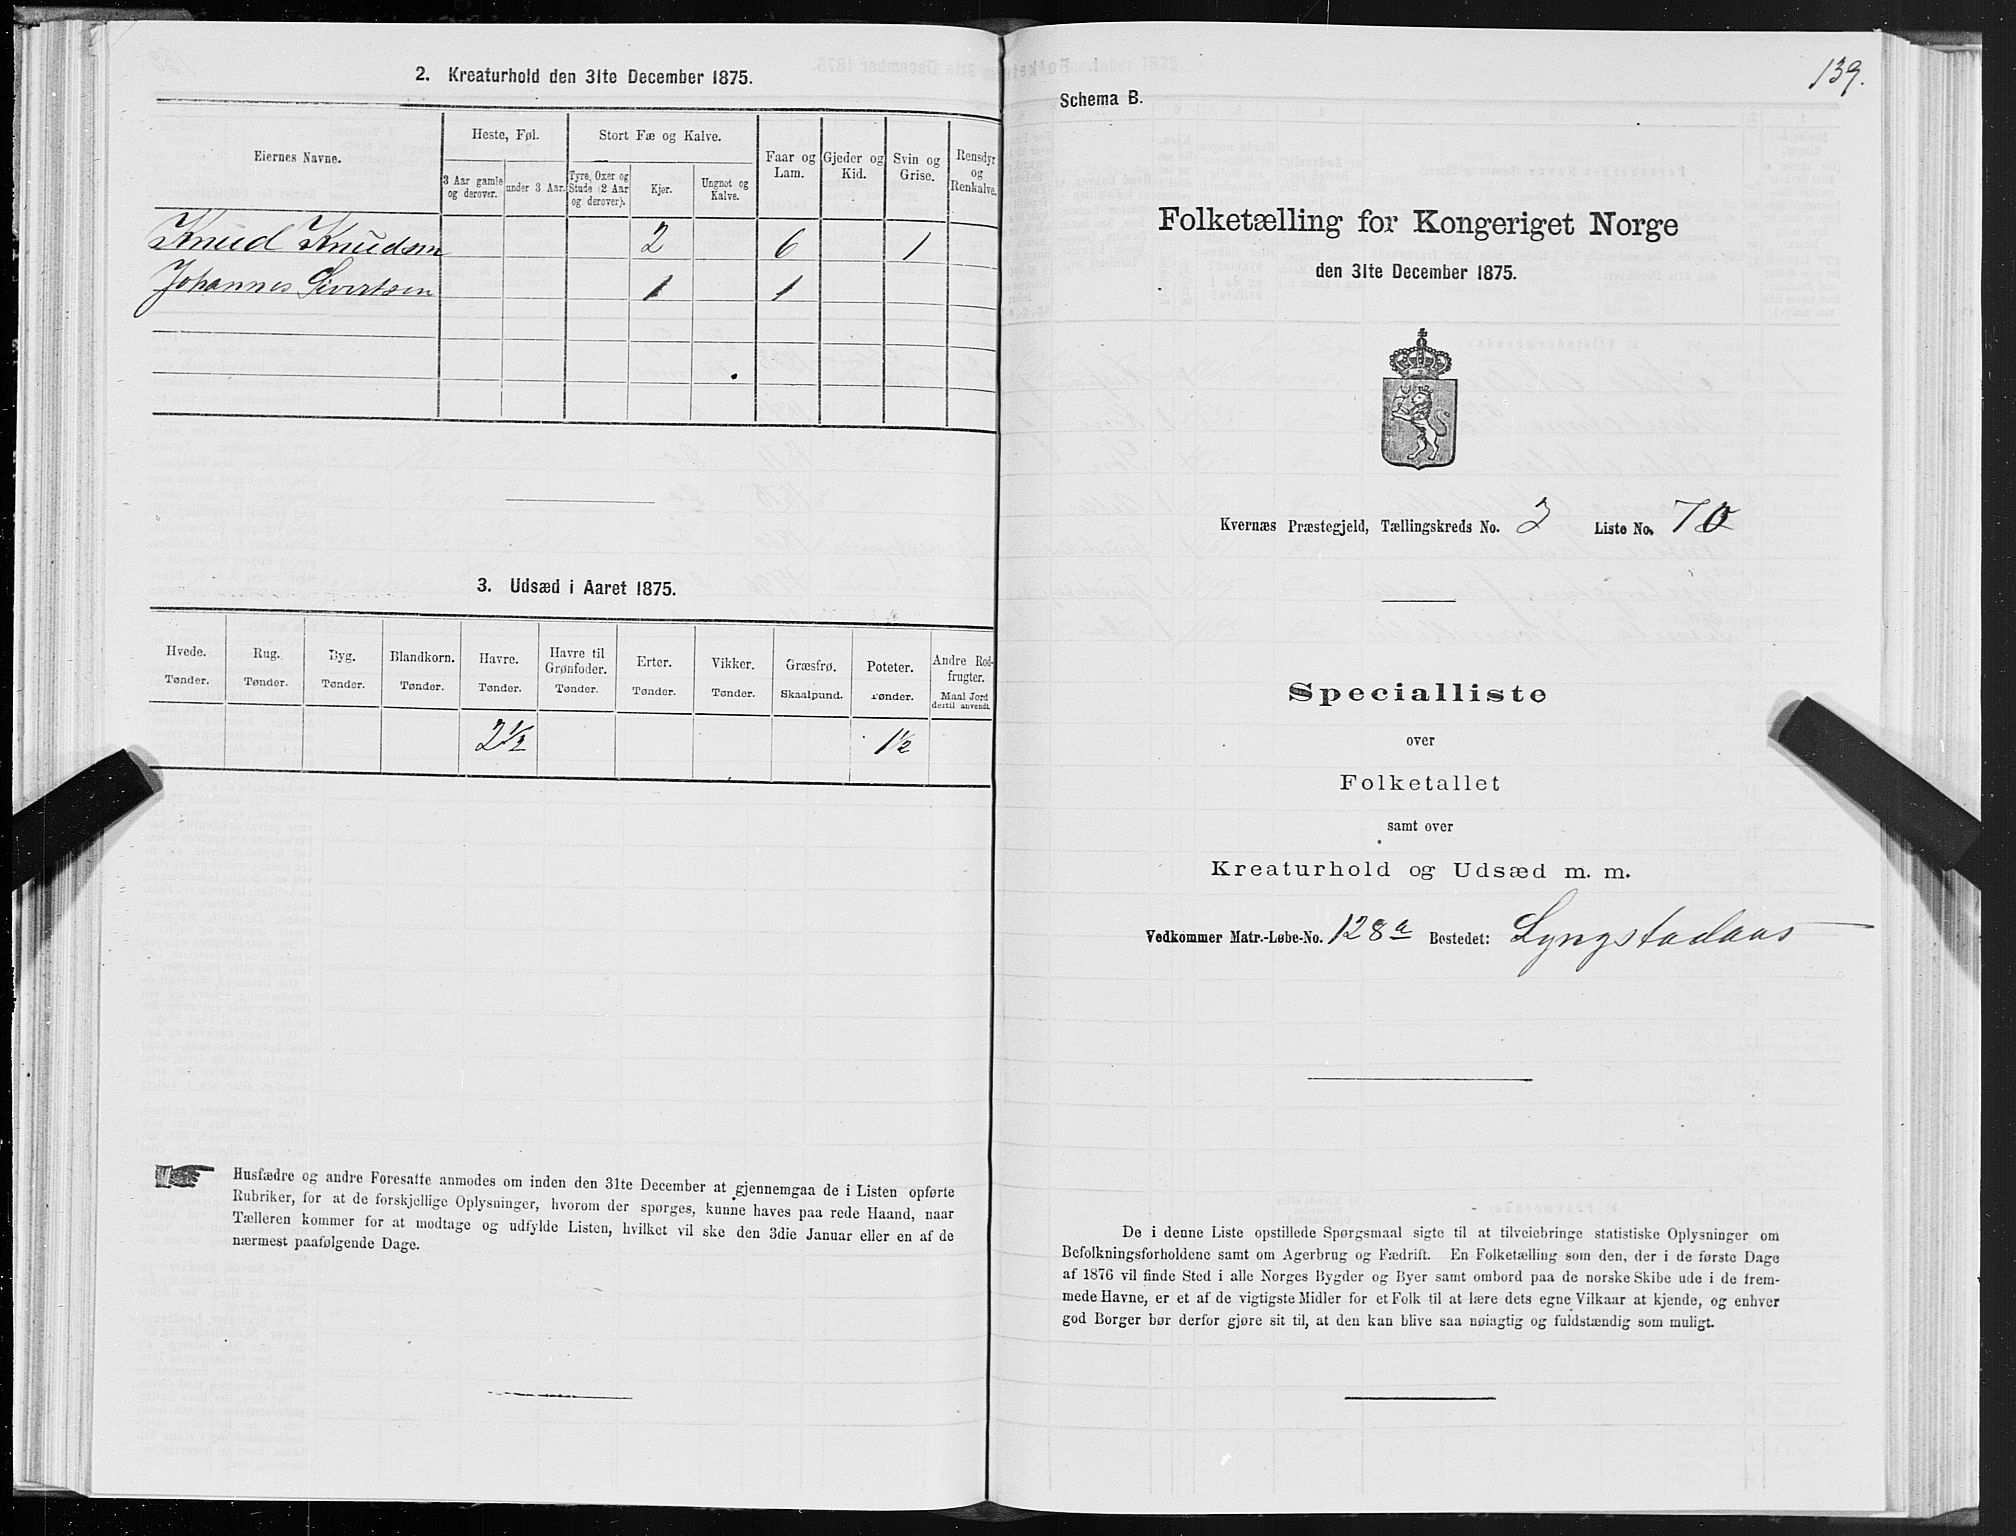 2. Kreaturhold den 31te December 1875.
Eiernes Navne.
Heste, Føl.
Stort Fæ og Kalve.
Faar og Lam.
Gjeder og Kid.
Svin og Grise.
Rensdyr og Renkalve.
3 Aar gamle og derover.
under 3 Aar.
Tyre, Oxer og Stude (2 Aar og derover).
Kjør.
Ungnøt og Kalve.
Knud Knudsen 2 6 1
Johannes Sivertsen 1 1
3. Udsæd i Aaret 1875.
Hvede. Rug. Byg. Blandkorn. Havre. Havre til Grønfoder. Erter. Vikker. Græsfrø. Poteter. Andre Rodfrugter.
Tønder. Tønder. Tønder. Tønder. Tønder. Tønder. Tønder. Tønder. Skaalpund. Tønder. Maal Jord dertil anvendt.
2½ 1½
Husfædre og andre Foresatte anmodes om inden den 31te December at gjennemgaa de i Listen opførte
Rubriker, for at de forskjellige Oplysninger, hvorom der spørges, kunne haves paa rede Haand, naar
Tælleren kommer for at modtage og udfylde Listen, hvilket vil ske den 3die Januar eller en af de
nærmest paafølgende Dage.
139.
Schema B.
Folketælling for Kongeriget Norge
den 31te December 1875.
Kvernæs Præstegjeld, Tællingskreds No. 3 Liste No. 70
Specialliste
over
Folketallet
samt over
Kreaturhold og Udsæd m. m.
Vedkommer Matr.-Løbe-No. 128a Bostedet: Lyngstadaas
De i denne Liste opstillede Spørgsmaal sigte til at tilveiebringe statistiske Oplysninger om
Befolkningsforholdene samt om Agerbrug og Fædrift. En Folketælling som den, der i de første Dage
af 1876 vil finde Sted i alle Norges Bygder og Byer samt ombord paa de norske Skibe ude i de frem-
mede Havne, er et af de vigtigste Midler for et Folk til at lære dets egne Vilkaar at kjende, og enhver
god Borger bør derfor gjøre sit til, at den kan blive saa nøiagtig og fuldstændig som muligt.